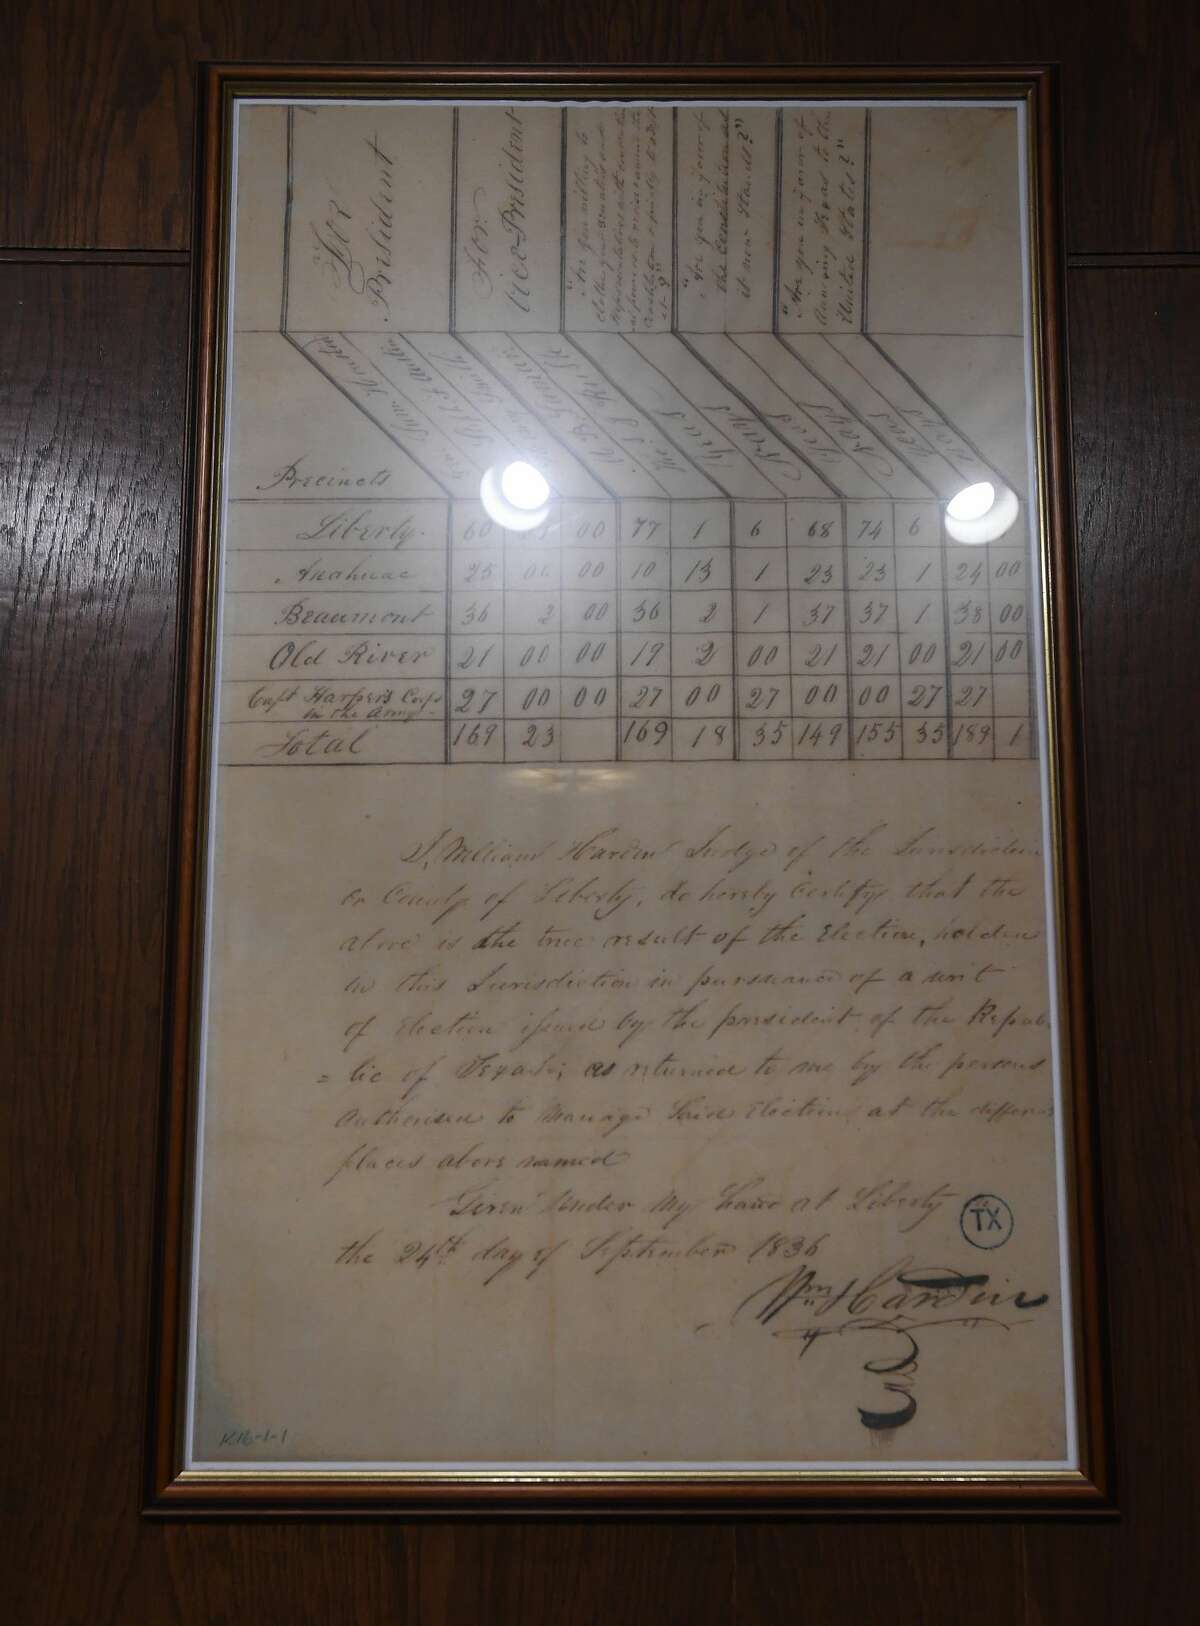 For President
For Vice-President
"Are you willing to
clothe your Senators and
Representatives with conventional powers to revise, amend the
Constitution &
it?"
"Are you in favor of
the Constitution as
it now stands?"
"Are you in favor of
annexing Texas to the
United States?"
Precincts
Liberty 60 00 77 1 6 68 74 6
Anahuac 25 00 00 10 13 1 23 23 1 24 00
Beaumont 36 2 00 36 2 1 37 37 1 38 00
Old River 21 00 00 19 2 00 21 21 00 21 00
Capt Harper's Corps
in the Army 27 00 00 27 00 27 00 00 27 27
Total 169 23 169 18 35 149 155 35 189 1
I, William Hardin Judge of the Jurisdiction
or County of Liberty, do hereby Certify that the
above is the true result of the Election, holden
in this Jurisdiction in pursuance of a writ
of Election issued by the president of the Repub-
=lic of Texas; as returned to me by the persons
authorised to Manage Said Election at the different
places above named
Given Under My hand at Liberty
the 24th day of September 1836
TX
Wm Hardin
K16-1-1